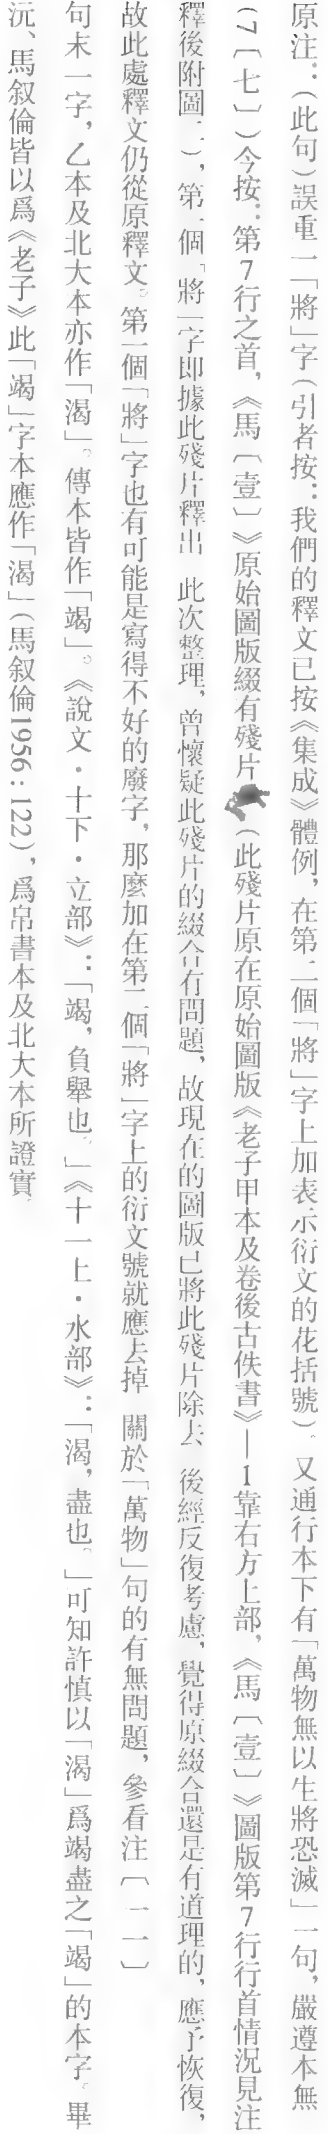 原注：（此句）誤重一「將」字（引者按：我們的釋文已按《集成》體例，在第二個「將」字上加表示衍文的花括號）。又通行本下有「萬物無以生將恐滅」一句，嚴遵本無
（7〔七〕）今按：第7行之首，《馬〔壹〕》原始圖版綴有殘片（此殘片原在原始圖版《老子甲本及卷後古佚書》—1靠右方上部，《馬〔壹〕》圖版第7行行首情況見注
釋後附圖二），第一個「將」字即據此殘片釋出 此次整理，曾懷疑此殘片的綴合有問題，故現在的圖版已將此殘片除去 後經反復考慮，覺得原綴合還是有道理的，應予恢復，
故此處釋文仍從原釋文。第一個「將」字也有可能是寫得不好的廢字，那麼加在第二個「將」字上的衍文號就應去掉 關於「萬物」句的有無問題，參看注〔一一〕
句末一字，乙本及北大本亦作「渴」。傳本皆作「竭」。《說文·十下·立部》：「竭，負舉也。」《十一上·水部》：「渴，盡也。」可知許慎以「渴」爲竭盡之「竭」的本字。畢
沅、馬叙倫皆以爲《老子》此「竭」字本應作「渴」（馬叙倫1956：122），爲帛書本及北大本所證實